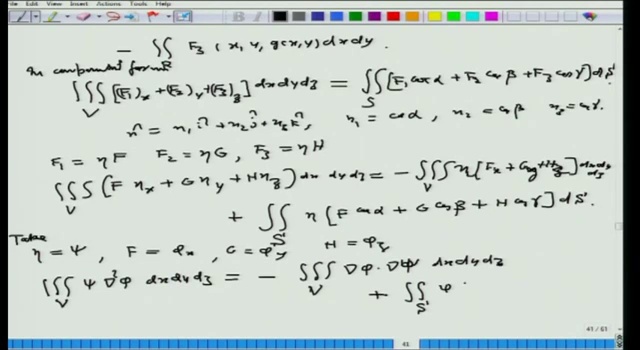 Edit View Insert Actions Tools Help
- ∬_R F₃ (x, y, g(x,y)) dx dy.
In component form
∭_V [(F₁)_x + (F₂)_y + (F₃)_z] dx dy dz = ∬_S [F₁ cos α + F₂ cos β + F₃ cos γ] dS
n̂ = n₁ î + n₂ ĵ + n₃ k̂, n₁ = cos α, n₂ = cos β n₃ = cos γ.
F₁ = ηF F₂ = ηG, F₃ = ηH
∭_V (F η_x + G η_y + H η_z) dx dy dz = - ∭_V η [F_x + G_y + H_z] dx dy dz
+ ∬_S η [F cos α + G cos β + H cos γ] dS.
Take η = Ψ, F = φ_x, G = φ_y H = φ_z
∭_V Ψ ∇²φ dx dy dz = - ∭_V ∇φ · ∇Ψ dx dy dz
+ ∬_S φ
41 / 61
41